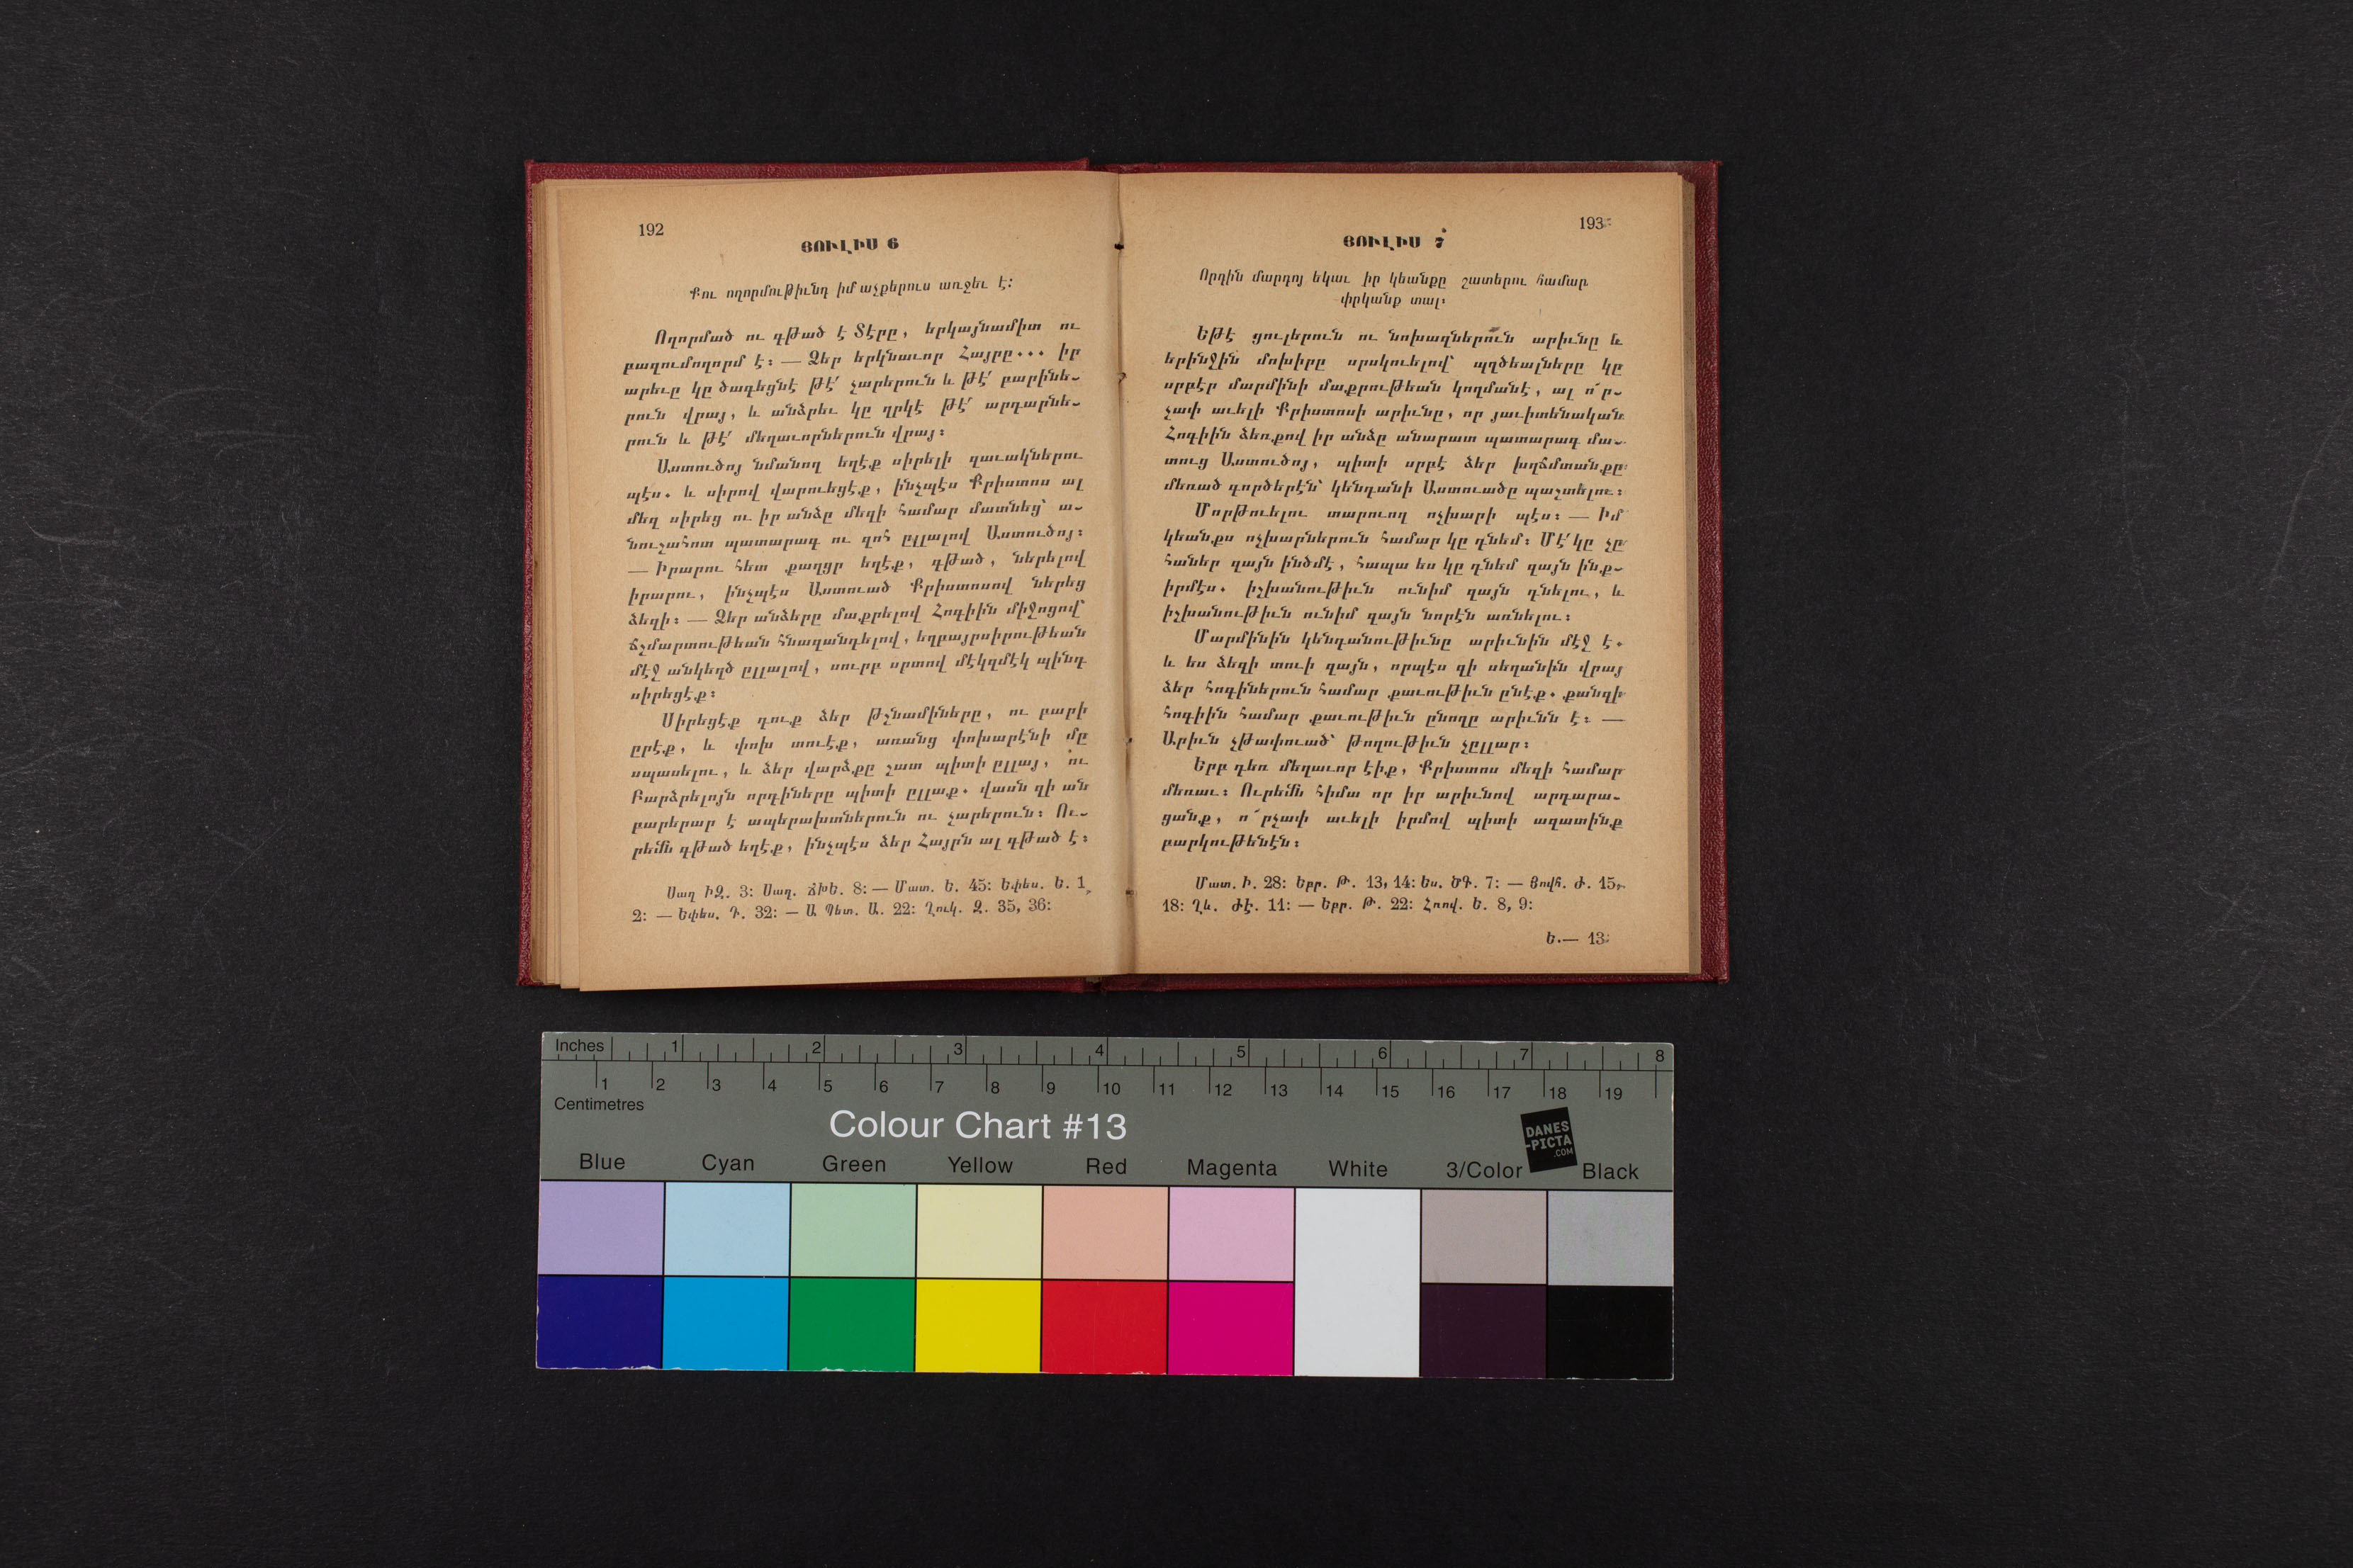 192
ՅՈՒԼԻՍ 6
Քու ողորմութիւնդ իմ աչքերուս առջեւ է:
Ողորմած ու գթած է Տէրը, երկայնամիտ ու
բազումողորմ է: — Ձեր երկնաւոր Հայրը... իր
արեւը կը ծագեցնէ թէ՛ չարերուն և թէ՛ բարինե-
րուն վրայ, և անձրեւ կը ղրկէ թէ՛ արդարնե-
րուն և թէ՛ մեղաւորներուն վրայ:
Աստուծոյ նմանող եղէք սիրելի զաւակներու
պէս. և սիրով վարուեցէք, ինչպէս Քրիստոս ալ
մեզ սիրեց ու իր անձը մեզի համար մատնեց՝ ա-
նուշահոտ պատարագ ու զոհ ըլլալով Աստուծոյ:
— Իրարու հետ քաղցր եղէք, գթած, ներելով
իրարու, ինչպէս Աստուած Քրիստոսով ներեց
ձեզի: — Ձեր անձերը մաքրելով Հոգիին միջոցով՝
ճշմարտութեան հնազանդելով, եղբայրսիրութեան
մէջ անկեղծ ըլլալով, սուրբ սրտով մէկզմէկ պինդ
սիրեցէք:
Սիրեցէք դուք ձեր թշնամիները, ու բարի
ըրէք, և փոխ տուէք, առանց փոխարէնի մը
սպասելու, և ձեր վարձքը շատ պիտի ըլլայ, ու
Բարձրելոյն որդիները պիտի ըլլաք. վասն զի ան
բարերար է ապերախտներուն ու չարերուն: Ու-
րեմն գթած եղէք, ինչպէս ձեր Հայրն ալ գթած է:
Սաղ ԻԶ. 3: Սաղ. ՃԽԵ. 8: — Մատ. Ե. 45: Եփես. Ե. 1,
2: — Եփես. Դ. 32: — Ա Պետ. Ա. 22: Ղուկ. Զ. 35, 36:
193
ՅՈՒԼԻՍ 7
Որդին մարդոյ եկաւ իր կեանքը շատերու համար
փրկանք տալ.
Եթէ ցուլերուն ու նոխազներուն արիւնը և
երինջին մոխիրը սրսկուելով՝ պղծեալները կը
սրբէր մարմինի մաքրութեան կողմանէ, ալ ո՜ր-
չափ աւելի Քրիստոսի արիւնը, որ յաւիտենական
Հոգիին ձեռքով իր անձը անարատ պատարագ մա-
տուց Աստուծոյ, պիտի սրբէ ձեր խղճմտանքը
մեռած գործերէն՝ կենդանի Աստուածը պաշտելու:
Մորթուելու տարուող ոչխարի պէս: — Իմ
կեանքս ոչխարներուն համար կը դնեմ: Մէ՛կը չը
հաներ զայն ինծմէ, հապա ես կը դնեմ զայն ինք-
իրմէս. իշխանութիւն ունիմ զայն դնելու, և
իշխանութիւն ունիմ զայն նորէն առնելու:
Մարմինին կենդանութիւնը արիւնին մէջ է.
և ես ձեզի տուի զայն, որպէս զի սեղանին վրայ
ձեր հոգիներուն համար քաւութիւն ընէք. քանզի
հոգիին համար քաւութիւն ընողը արիւնն է: —
Արիւն չթափուած՝ թողութիւն չըլլար:
Երբ դեռ մեղաւոր էիք, Քրիստոս մեզի համար
մեռաւ: Ուրեմն հիմա որ իր արիւնով արդարա-
ցանք, ո՜րչափ աւելի իրմով պիտի ազատինք
բարկութենէն:
Մատ. Ի. 28: Եբր. Թ. 13, 14: Ես. ԾԳ. 7: — Յովհ. Ժ. 15,
18: Ղև. ԺԷ. 11: — Եբր. Թ. 22: Հռով. Ե. 8, 9:
Ե.— 13
Inches 1 2 3 4 5 6 7 8
1 2 3 4 5 6 7 8 9 10 11 12 13 14 15 16 17 18 19
Centimetres
Colour Chart #13
DANES
-PICTA
.COM
Blue Cyan Green Yellow Red Magenta White 3/Color Black